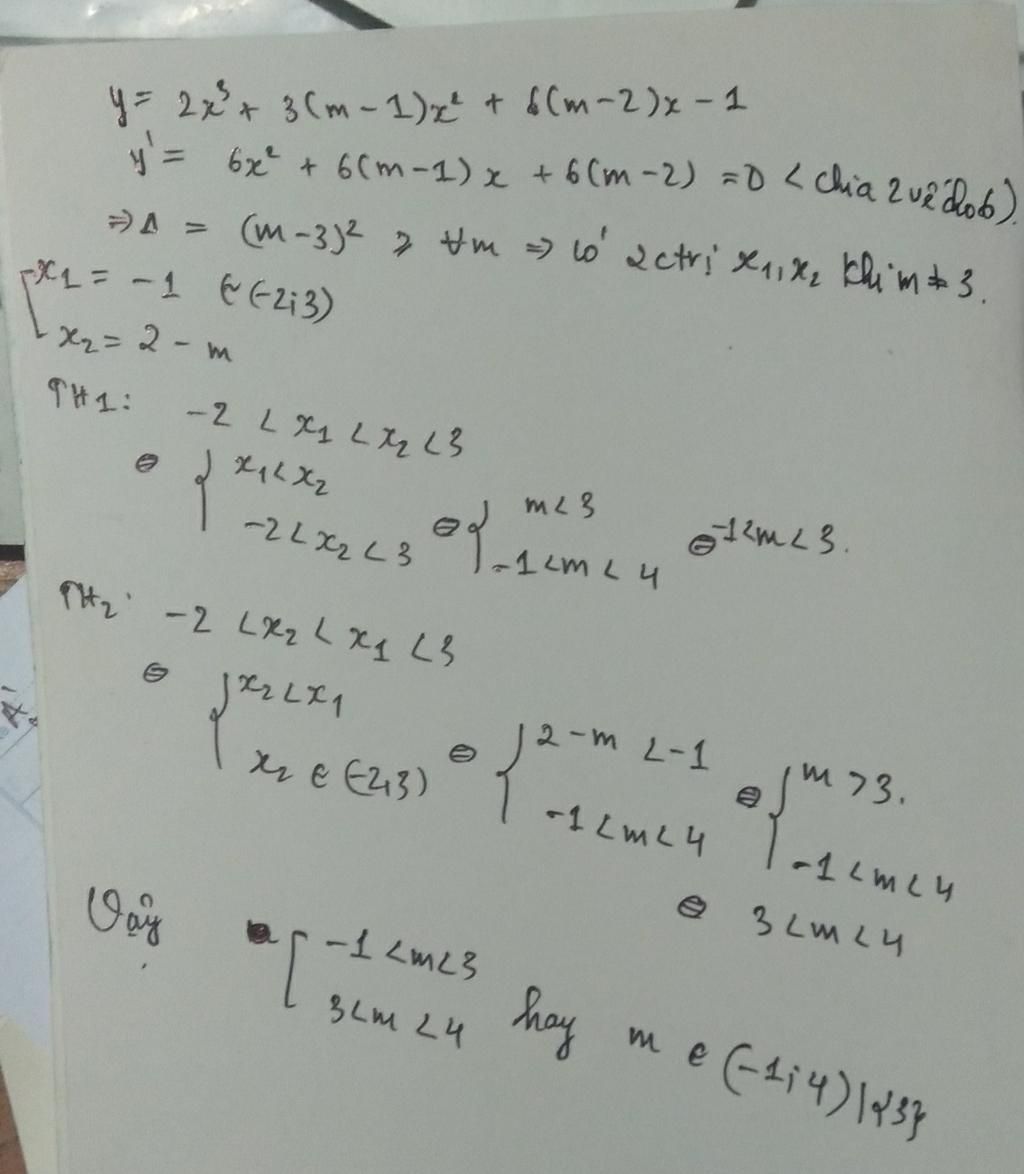 y = 2x³ + 3(m-1)x² + 6(m-2)x - 1
y' = 6x² + 6(m-1)x + 6(m-2) = 0 < chia 2 vế cho 6).
⇒ Δ = (m-3)² ≥ ∀m ⇒ có 2 ctrị x₁, x₂ khi m ≠ 3.
[ x₁ = -1 ∈ (-2;3)
x₂ = 2 - m
TH1: -2 < x₁ < x₂ < 3
⇔ { x₁ < x₂
-2 < x₂ < 3 ⇔ { m < 3
-1 < m < 4 ⇔ -1 < m < 3.
TH2: -2 < x₂ < x₁ < 3
⇔ { x₂ < x₁
x₂ ∈ (-2;3) ⇔ { 2 - m < -1
-1 < m < 4 ⇔ { m > 3.
-1 < m < 4
⇔ 3 < m < 4
Vậy [ -1 < m < 3
3 < m < 4 hay m ∈ (-1;4) \ {3}